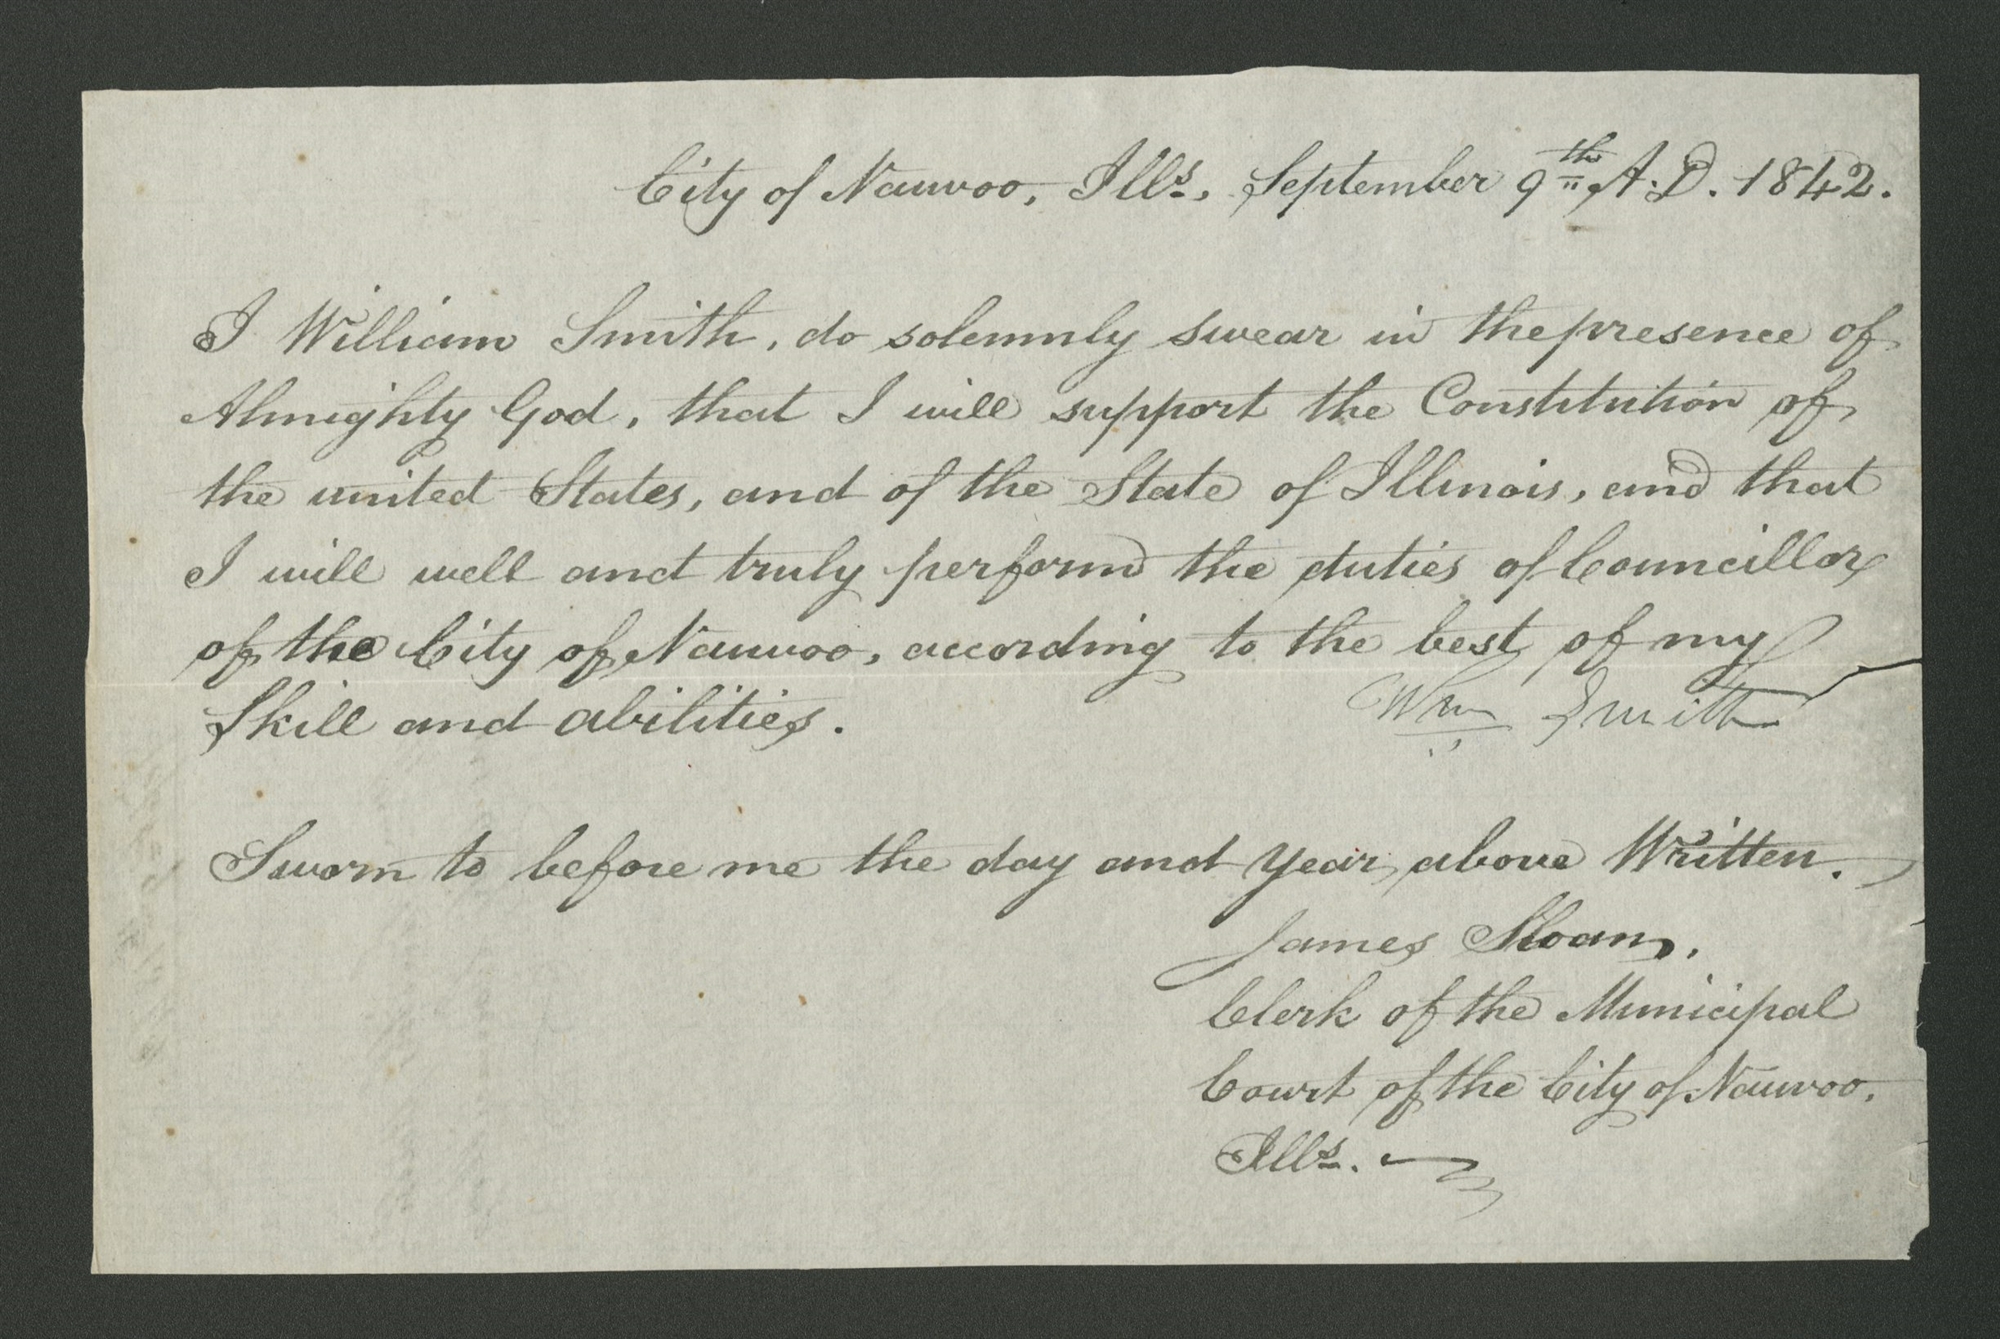 City of Nauvoo, Ills, September 9th A.D. 1842.
I William Smith, do solemnly swear in the presence of
Almighty God, that I will support the Constitution of
the united States, and of the State of Illinois, and that
I will well and truly perform the duties of Councillor
of the City of Nauvoo, according to the best of my
Skill and abilities.
Wm Smith
Sworn to before me the day and year above Written.
James Sloan,
Clerk of the Municipal
Court of the City of Nauvoo,
Ills.